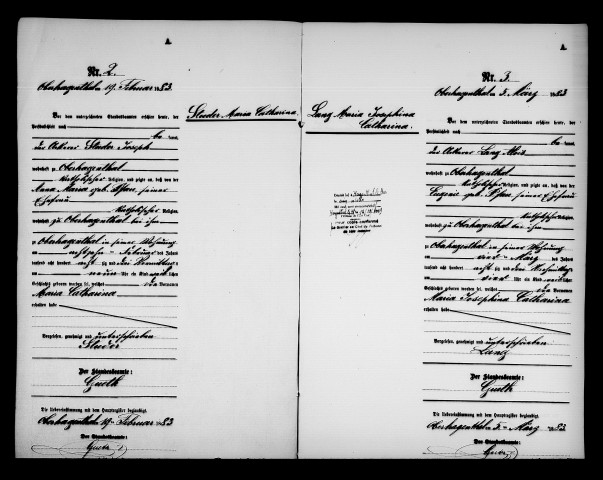 A.
Nr. 2.
Oberhagenthal am 19. Februar 1883
Vor dem unterzeichneten Standesbeamten erschien heute, der
Persönlichkeit nach
kannt,
der Ackerer Studer Joseph
wohnhaft zu Oberhagenthal
katholischer Religion, und zeigte an, daß von der
Anna Maria geb.
seiner
Ehefrau
katholischer Religion,
wohnhaft zu Oberhagenthal bei ihm
zu
Oberhagenthal in seiner Wohnung
am
Februar des Jahres
tausend acht hundert acht zig und drei Vormittags
um neun Uhr ein Kind weiblichen
Geschlechts geboren worden sei, welches die Vornamen
Maria Catharina
erhalten habe
Vorgelesen, genehmigt und unterschrieben
Studer
Der Standesbeamte:
Die Uebereinstimmung mit dem Hauptregister beglaubigt.
Oberhagenthal am 19. Februar 1883
Der Standesbeamte:
Studer Maria Catharina
A.
Nr. 3.
Oberhagenthal am 5. März 1883
Vor dem unterzeichneten Standesbeamten erschien heute, der
Persönlichkeit nach
kannt,
der Ackerer Lang Alois
wohnhaft zu Oberhagenthal
katholischer Religion, und zeigte an, daß von der
Eugenie geb.
seiner Ehefrau
katholischer Religion,
wohnhaft zu Oberhagenthal bei ihm
zu
Oberhagenthal in seiner Wohnung
am vier März des Jahres
tausend acht hundert acht zig und drei Vormittags
um vier Uhr ein Kind weiblichen
Geschlechts geboren worden sei, welches die Vornamen
Maria Josephina Catharina
erhalten habe
Vorgelesen, genehmigt und unterschrieben
Lang
Der Standesbeamte:
Die Uebereinstimmung mit dem Hauptregister beglaubigt.
Oberhagenthal am 5. März 1883
Der Standesbeamte:
Lang Maria Josephina
Catharina.